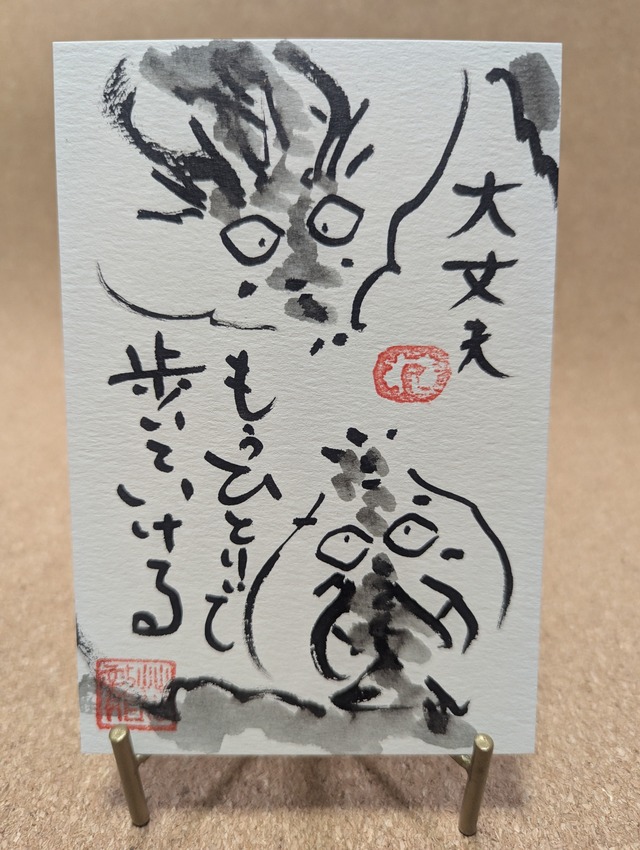 大丈夫
もうひとりで
歩いていける